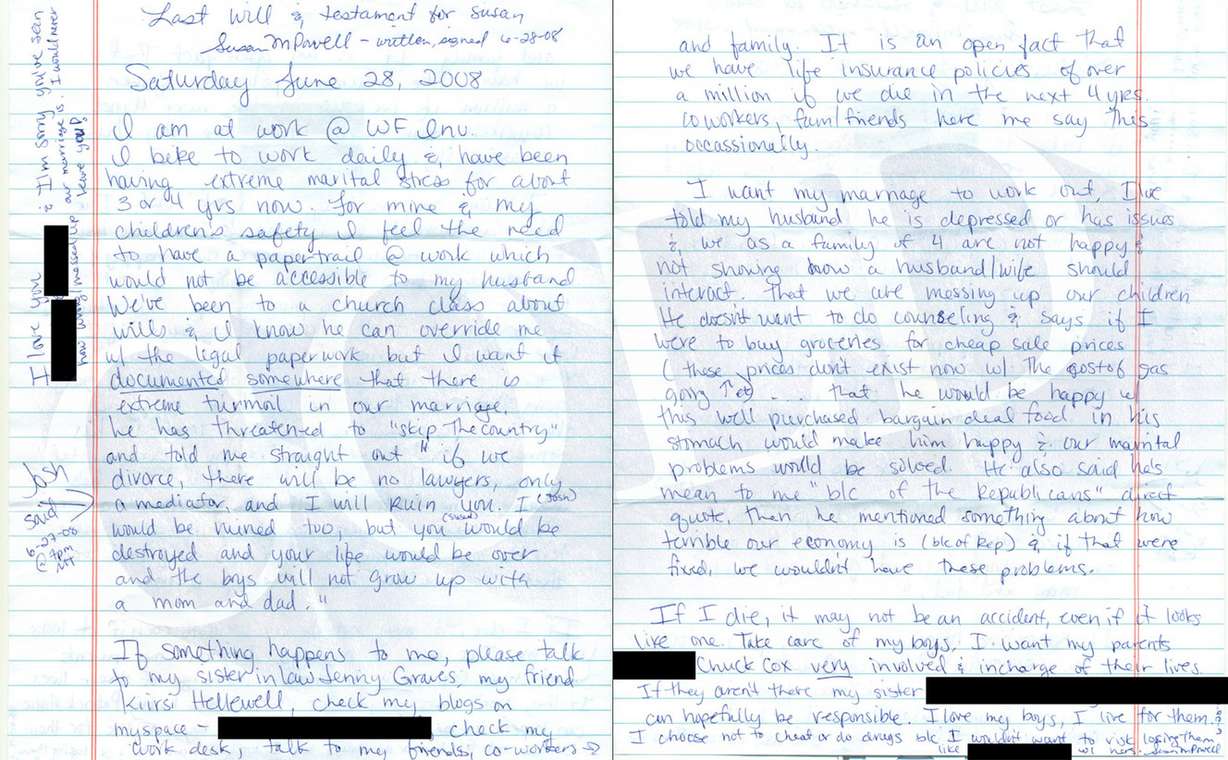 Last will & testament for Susan
Susan M Powell - written, signed 6-28-08
Saturday June 28, 2008
I am at work @ WF Inv.
I bike to work daily & have been
having extreme marital stress for about
3 or 4 yrs now. For mine & my
children's safety I feel the need
to have a paper trail @ work which
would not be accessible to my husband
We've been to a church class about
wills & I know he can override me
w/ the legal paperwork but I want it
documented somewhere that there is
extreme turmoil in our marriage.
he has threatened to "skip the country"
and told me straight out "if we
divorce, there will be no lawyers, only
a mediator, and I will ruin you. I (Josh)
would be ruined too, but you (susan) would be
destroyed and your life would be over
and the boys will not grow up with
a mom and dad."
If something happens to me, please talk
to my sister in law Jenny Graves, my friend
Kiirsi Hellewell, check my blogs on
myspace - check my
work desk, talk to my friends, co-workers →
I love you & I'm sorry you've seen
how wrong/messed up our marriage is. I would never
leave you!
Josh
said
6-27-08
@
and family. It is an open fact that
we have life insurance policies of over
a million if we die in the next 4 yrs.
coworkers, fam/friends here me say this
occassionally.
I want my marriage to work out, I've
told my husband he is depressed or has issues
& we as a family of 4 are not happy &
not showing how a husband/wife should
interact. That we are messing up our children
He doesn't want to do counseling & says if I
were to buy groceries for cheap sale prices
(these prices don't exist now w/ the cost of gas
going ↑ etc) . . . that he would be happy w/
this well purchased bargain deal food in his
stomach would make him happy & our marital
problems would be solved. He also said he's
mean to me "b/c of the Republicans" direct
quote. then he mentioned something about how
terrible our economy is (b/c of Rep) & if that were
fixed, we wouldn't have these problems.
If I die, it may not be an accident, even if it looks
like one. Take care of my boys. I want my parents
Chuck Cox very involved & incharge of their lives.
If they aren't there my sister
can hopefully be responsible. I love my boys, I live for them. &
I choose not to cheat or do drugs b/c I wouldn't want to risk losing them
like w/ hers. - Susan M Powell